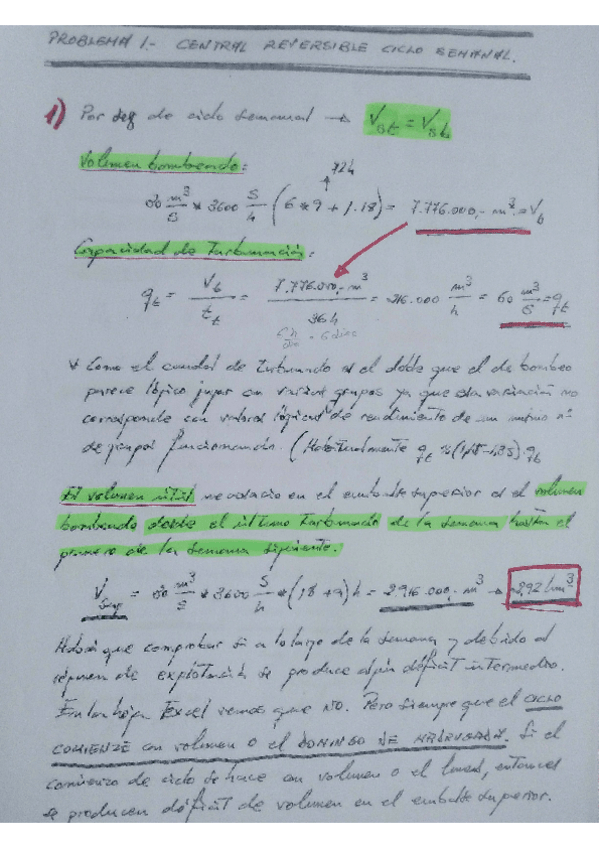 PROBLEMA 1.- CENTRAL REVERSIBLE CICLO SEMANAL.
1) Por ser de ciclo semanal → V_st = V_sb
Volumen bombeado:
72h
30 m³/s * 3600 s/h (6*9 + 1.18) = 7.776.000,- m³ = V_b
Capacidad de Turbinación:
q_t = V_b / t_t = 7.776.000,- m³ / 36h = 216.000 m³/h = 60 m³/s = q_t
6 días
* Como el caudal de Turbinado es el doble que el de bombeo
parece lógico jugar con varios grupos ya que esta variación no
corresponde con valores lógicos de rendimiento de un mismo nº
de grupos funcionando. (Habitualmente q_t ≈ (1,15-1,25).q_b
El volumen útil necesario en el embalse superior es el volumen
bombeado desde el último Turbinado de la semana hasta el
primero de la semana siguiente.
V_sup = 30 m³/s * 3600 s/h * (18+9)h = 2.916.000,- m³ → 2,92 hm³
Habrá que comprobar si a lo largo de la semana y debido al
régimen de explotación se produce algún déficit intermedio.
En la hoja Excel vemos que NO. Pero siempre que el CICLO
COMIENZE con volumen 0 el DOMINGO DE MADRUGADA. Si el
comienzo de ciclo se hace con volumen 0 el lunes, entonces
se producen déficit de volumen en el embalse superior.